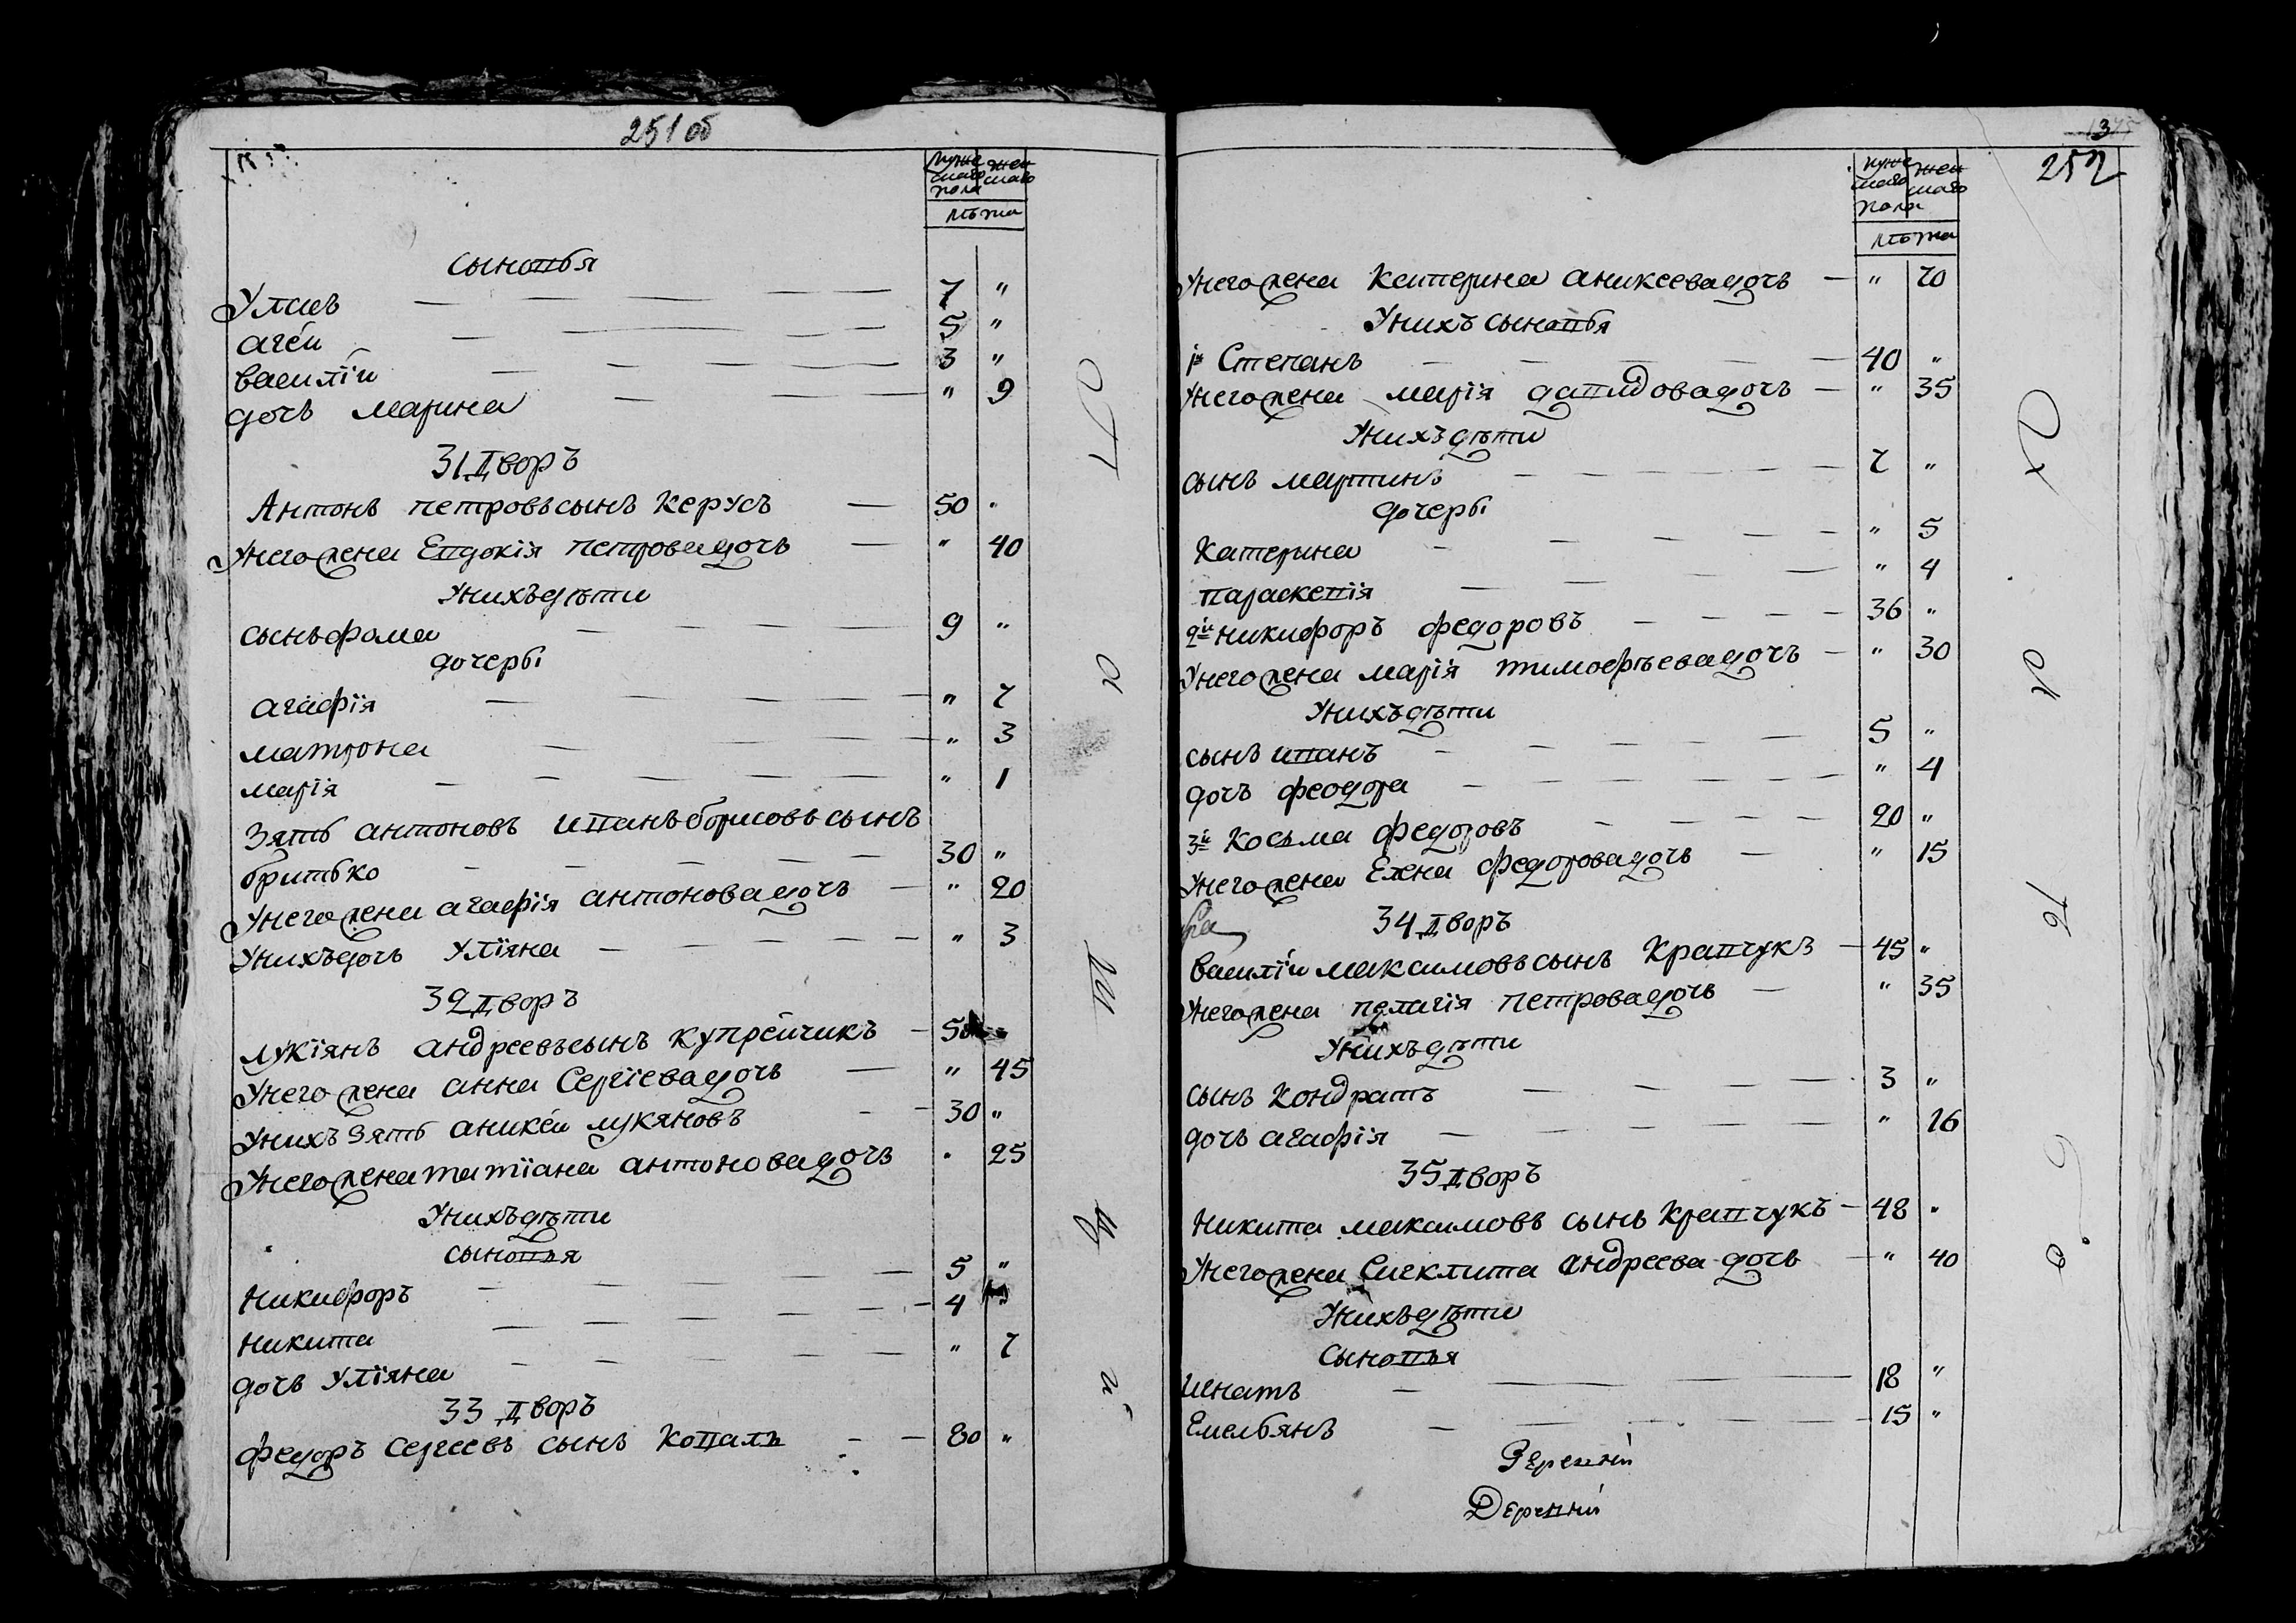 251 об
мужескаго пола
женскаго
лѣта
сыновья
Уласъ — 7 "
агей — 5 "
василій — 3 "
дочь марина — " 9
31 Дворъ
Антонъ петровъ сынъ Керусъ — 50 "
у него жена Евдокія петрова дочь — " 40
У нихъ дѣти
сынъ фома — 9 "
дочери
агафія — " 7
матрона — " 3
марія — " 1
Зять антоновъ иванъ борисовъ сынъ
бритько — 30 "
у него жена агафія антонова дочь — " 20
у нихъ дочь уліяна — " 3
32 Дворъ
лукіянъ андреевъ сынъ купрейчикъ — 50
у него жена анна Сергіева дочь — " 45
у нихъ зять аникей лукяновъ — 30 "
у него жена татіана антонова дочь — " 25
У нихъ дѣти
сыновья
никифоръ — 5 "
никита — 4 "
дочь уліяна — " 7
33 Дворъ
федоръ Сергеевъ сынъ коваль — 80 "
252
мужескаго пола
женскаго
лѣта
у него жена Катерина аникеева дочь — " 70
У нихъ сыновья
1й Степанъ — 40 "
у него жена марія давидова дочь — " 35
У нихъ дѣти
сынъ мартинъ — 7 "
дочери
Катерина — " 5
параскевія — " 4
2й никифоръ федоровъ — 36 "
у него жена марія тимофѣева дочь — " 30
У нихъ дѣти
сынъ иванъ — 5 "
дочь феодора — " 4
3й Косьма федоровъ — 20 "
у него жена Елена федорова дочь — " 15
34 Дворъ
василій максимовъ сынъ Кравчукъ — 45 "
у него жена пелагія петрова дочь — " 35
У нихъ дѣти
сынъ Кондратъ — 3 "
дочь агафія — " 16
35 Дворъ
никита максимовъ сынъ Кравчукъ — 48 "
у него жена Сигклита андреева дочь — " 40
У нихъ дѣти
Сыновья
игнатъ — 18 "
Емельянъ — 15 "